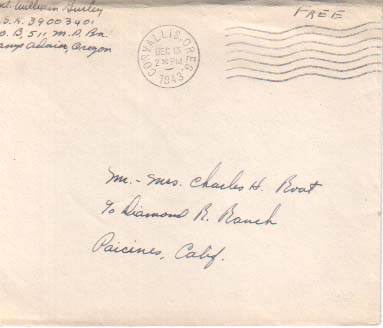 William Gurley
39003401
Co. B, 511, M.P. Bn.
Camp Adair, Oregon
FREE
CORVALLIS, OREG.
DEC 13
2 PM
1943
Mr. - Mrs. Charles H. Root
c/o Diamond R. Ranch
Paicines, Calif.